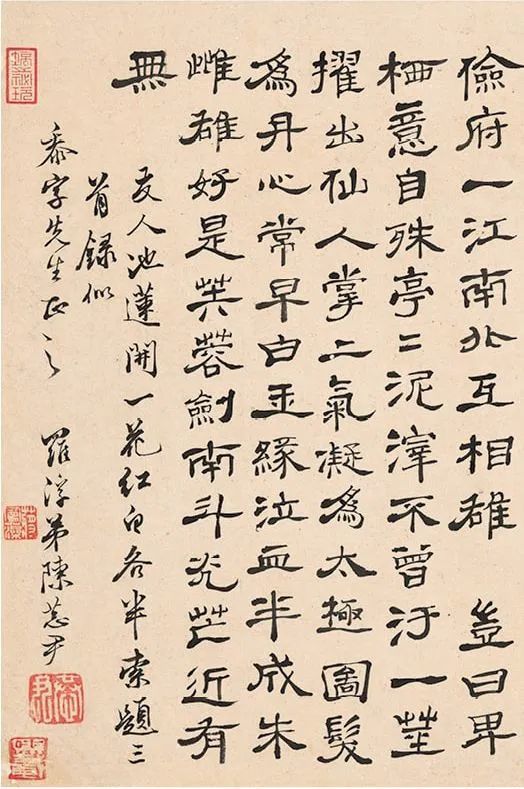 儉府一江南北互相雄 豈曰卑
栖意自殊亭二泥滓不曾汙一莖
擢出仙人掌二氣凝爲太極圖髮
爲丹心常早白玉緣泣血半成朱
雌雄好是芙蓉劍南斗光芒近有
無
友人池蓮開一花紅白各半索題三
首錄似
泰宇先生正之 羅浮弟陳恭尹